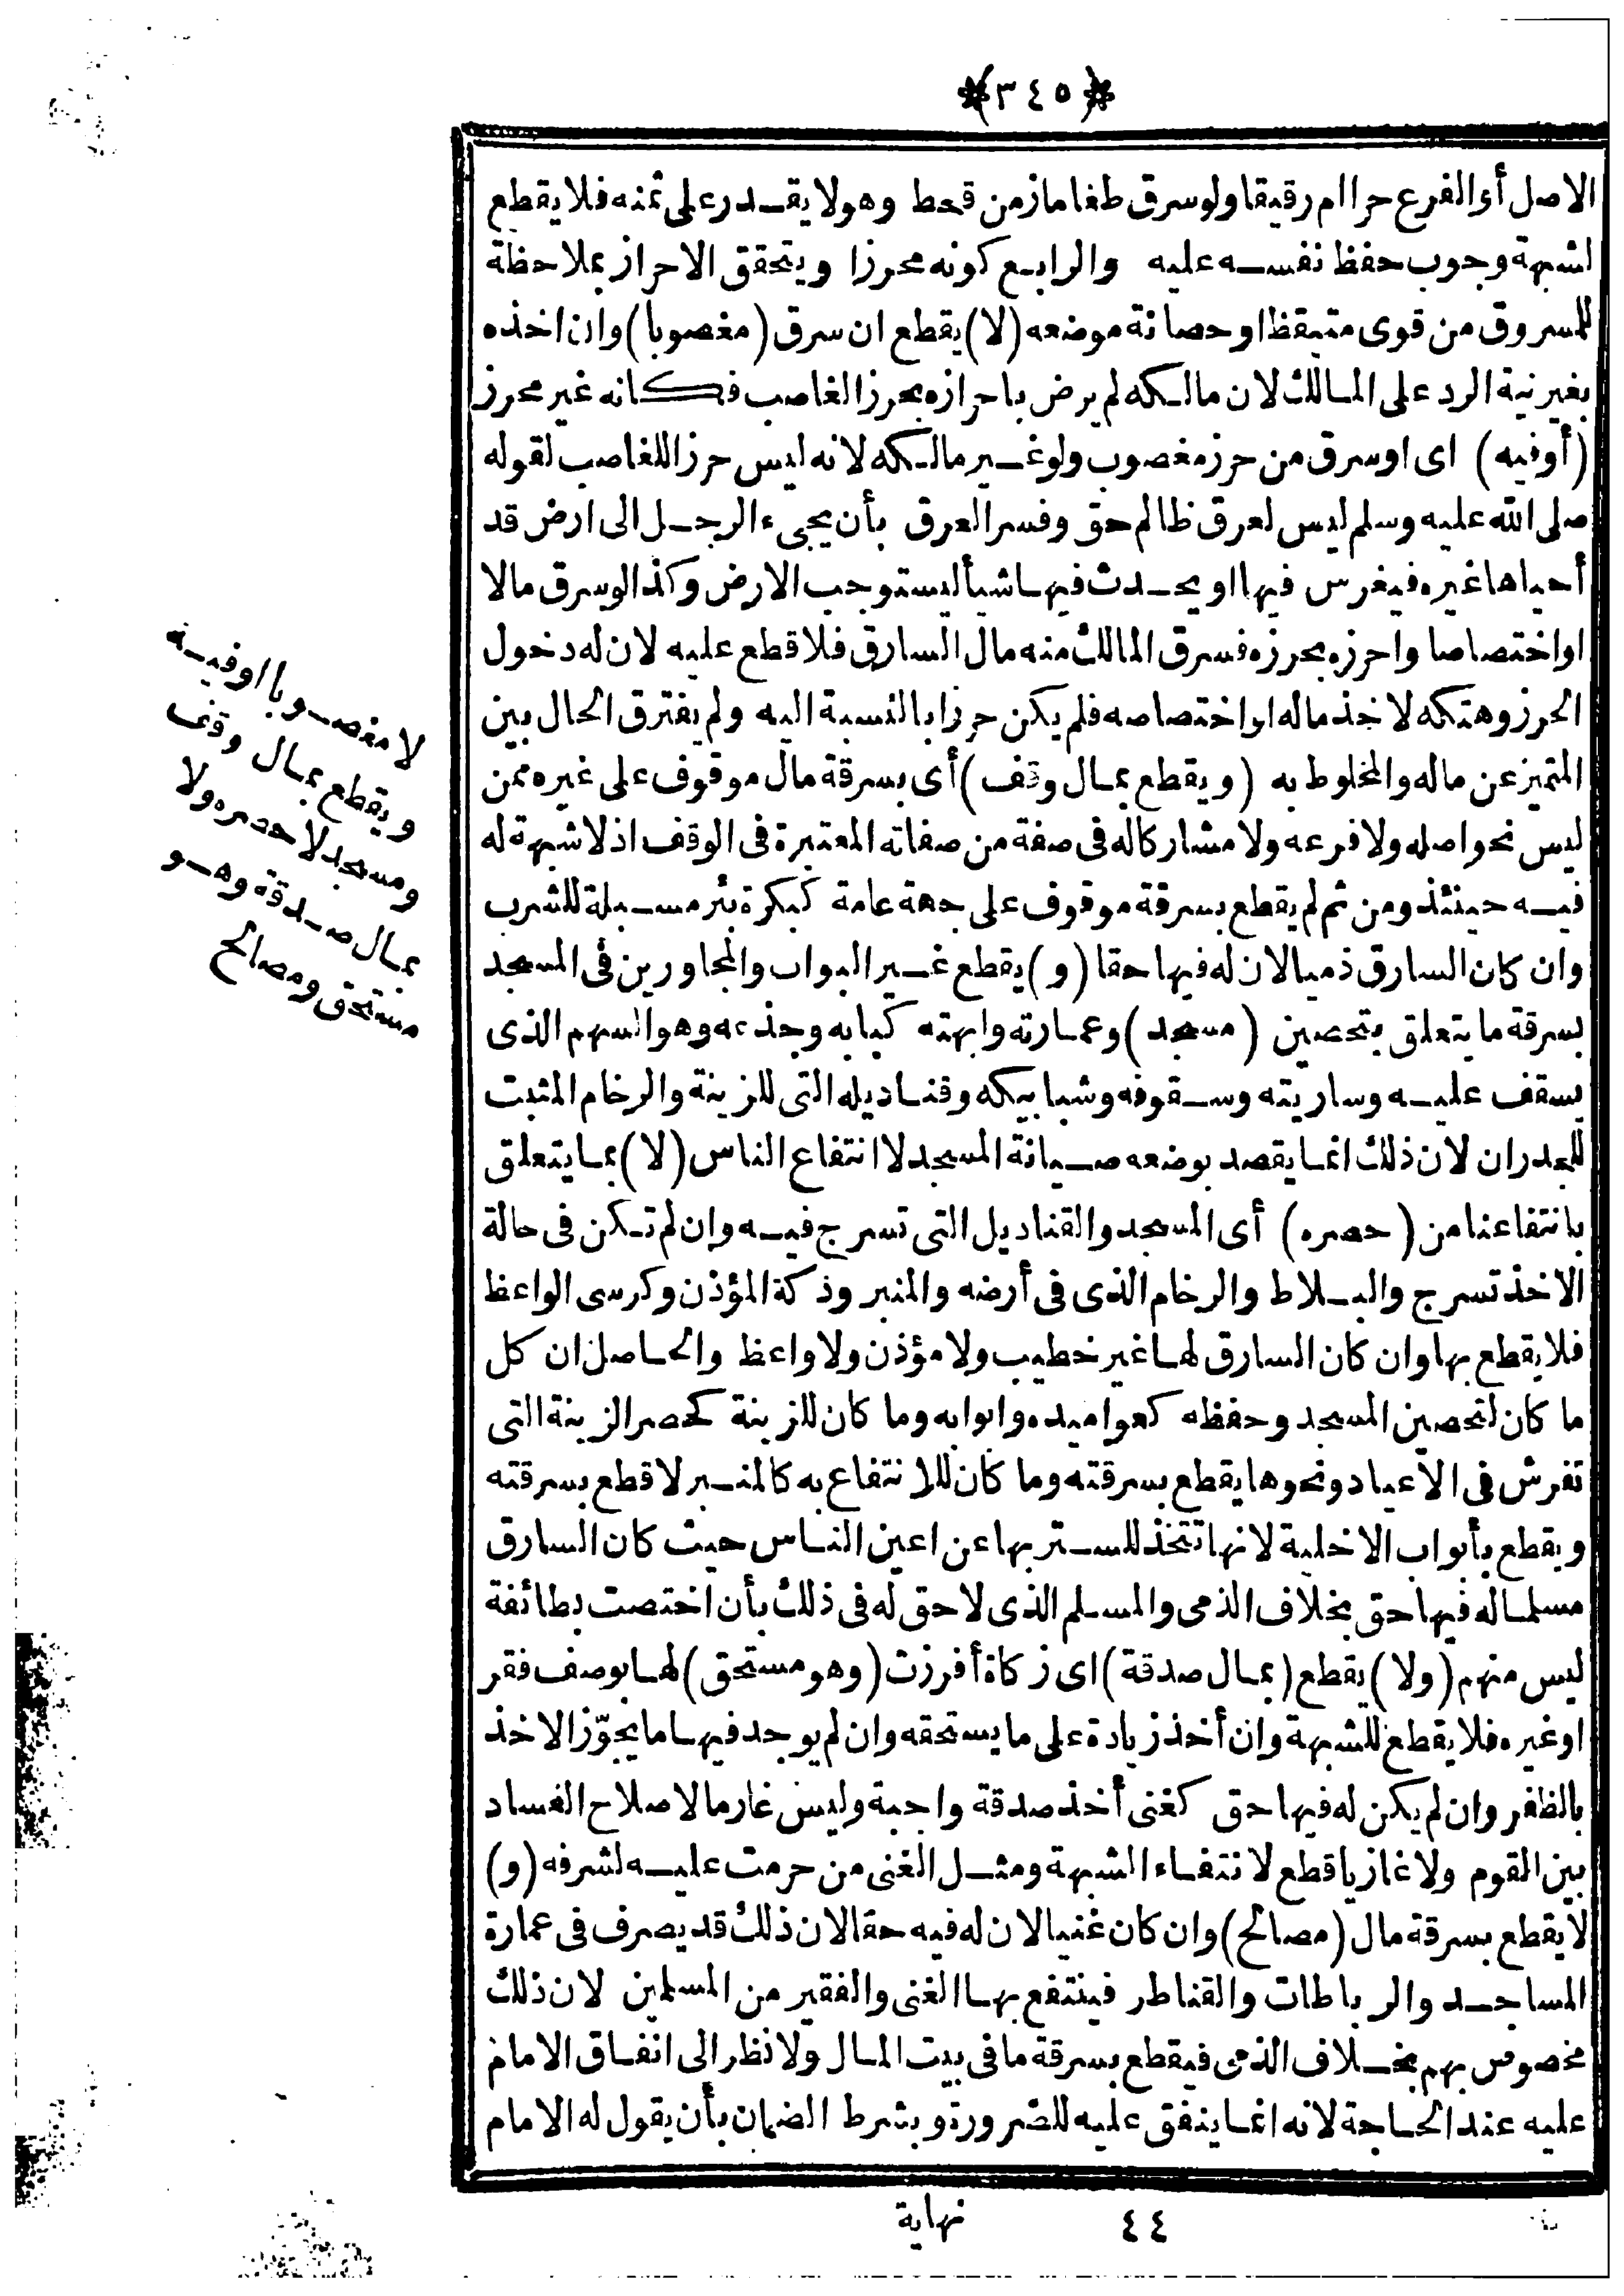 ﴿٣٤٥﴾
الاصل أو الفرع حرا ام رقيقا ولو سرق طعاما زمن قحط وهو لا يقدر على ثمنه فلا يقطع
لشبهة وجوب حفظ نفسه عليه والرابع كونه محرزا ويتحقق الاحراز بملاحظة
للمسروق من قوى متيقظ او حصانة موضعه (لا) يقطع ان سرق (مغصوبا) وان اخذه
بغير نية الرد على المالك لان مالكه لم يرض باحرازه بحرز الغاصب فكانه غير محرز
(أوفيه) اى او سرق من حرز مغصوب ولو غير مالكه لانه ليس حرزا للغاصب لقوله
صلى الله عليه وسلم ليس لعرق ظالم حق وفسر العرق بأن يجىء الرجل الى ارض قد
أحياها غيره فيغرس فيها او يحدث فيها شيأ ليستوجب الارض وكذا لو سرق مالا
او اختصاصا واحرزه بحرزه فسرق المالك منه مال السارق فلا قطع عليه لان له دخول
الحرز وهتكه لاخذ ماله او اختصاصه فلم يكن حرزا بالنسبة اليه ولم يفترق الحال بين
المتميز عن ماله والمخلوط به (ويقطع بمال وقف) أى بسرقة مال موقوف على غيره ممن
ليس نحو اصله ولا فرعه ولا مشاركا له فى صفة من صفاته المعتبرة فى الوقف اذ لا شبهة له
فيه حينئذ ومن ثم لم يقطع بسرقة موقوف على جهة عامة كبكرة بئر مسبلة للشرب
وان كان السارق ذميا لان له فيها حقا (و) يقطع غير البواب والمجاورين فى المسجد
بسرقة ما يتعلق بتحصين (مسجد) وعمارته وابهته كبابه وجذعه وهو السهم الذى
يسقف عليه وساريته وسقوفه وشبابيكه وقناديله التى للزينة والرخام المثبت
للجدران لان ذلك انما يقصد بوضعه صيانة المسجد لا انتفاع الناس (لا) بما يتعلق
بانتفاعنا من (حصره) أى المسجد والقناديل التى تسرج فيه وان لم تكن فى حالة
الاخذ تسرج والبلاط والرخام الذى فى أرضه والمنبر وذكة المؤذن وكرسى الواعظ
فلا يقطع بها وان كان السارق لها غير خطيب ولا مؤذن ولا واعظ والحاصل ان كل
ما كان لتحصين المسجد وحفظه كعواميده وابوابه وما كان للزينة كحصر الزينة التى
تفرش فى الأعياد ونحوها يقطع بسرقته وما كان للانتفاع به كالمنبر لا قطع بسرقته
ويقطع بأبواب الاخلية لانها تتخذ للستر بها عن اعين الناس حيث كان السارق
مسلما له فيها حق بخلاف الذمى والمسلم الذى لا حق له فى ذلك بأن اختصت بطائفة
ليس منهم (ولا) يقطع (بمال صدقة) اى زكاة أفرزت (وهو مستحق) لها بوصف فقر
او غيره فلا يقطع للشبهة وان أخذ زيادة على ما يستحقه وان لم يوجد فيها ما يجوّز الاخذ
بالظفر وان لم يكن له فيها حق كغنى أخذ صدقة واجبة وليس غارما لاصلاح الفساد
بين القوم ولا غازيا قطع لانتفاء الشبهة ومثل الغنى من حرمت عليه لشرفه (و)
لا يقطع بسرقة مال (مصالح) وان كان غنيا لان له فيه حقا لان ذلك قد يصرف فى عمارة
المساجد والرباطات والقناطر فينتفع بها الغنى والفقير من المسلمين لان ذلك
مخصوص بهم بخلاف الذمى فيقطع بسرقة ما فى بيت المال ولا نظر الى انفاق الامام
عليه عند الحاجة لانه انما ينفق عليه للضرورة وبشرط الضمان بأن يقول له الامام
لا مغصوبا اوفيه
ويقطع بمال وقف
ومسجد لا حصره ولا
بمال صدقة وهو
مستحق ومصالح
٤٤ نهاية